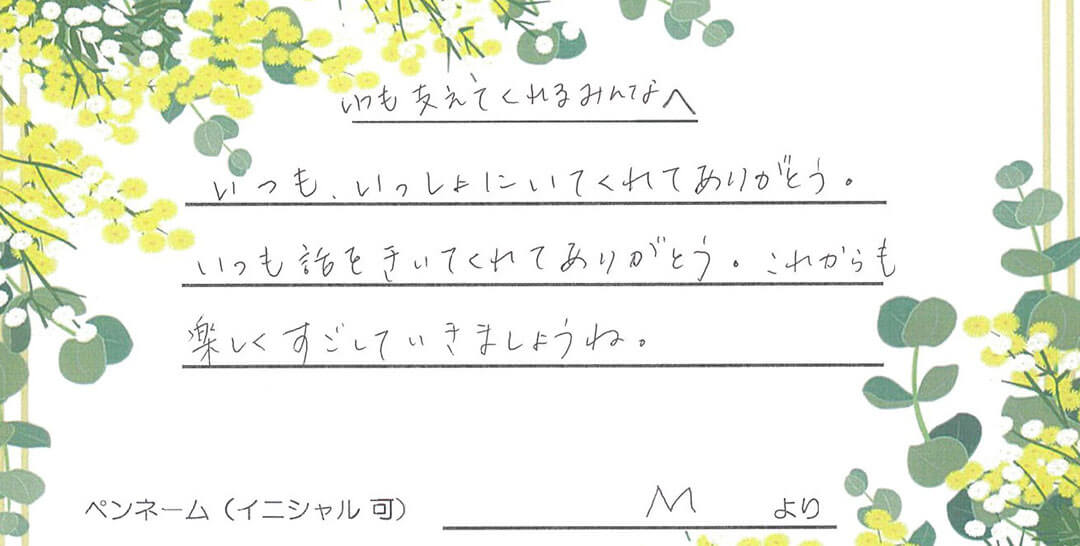 いつも支えてくれるみんなへ
いつも、いっしょにいてくれてありがとう。
いつも話をきいてくれてありがとう。これからも
楽しくすごしていきましょうね。
ペンネーム（イニシャル可） M より